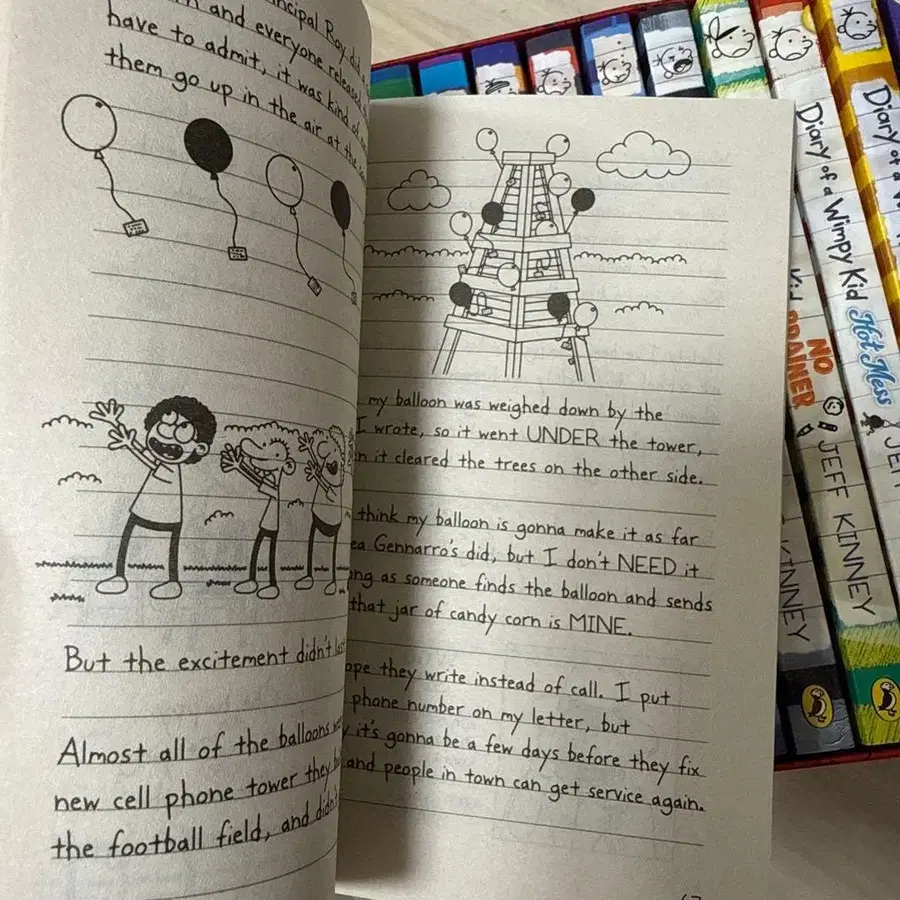 ncipal Roy did
and everyone released
have to admit, it was kind of
them go up in the air at the
But the excitement didn't
Almost all of the balloons
new cell phone tower they
the football field, and didn't
my balloon was weighed down by the
I wrote, so it went UNDER the tower,
it cleared the trees on the other side.
think my balloon is gonna make it as far
Gennarro's did, but I don't NEED it
as someone finds the balloon and sends
that jar of candy corn is MINE.
they write instead of call. I put
phone number on my letter, but
it's gonna be a few days before they fix
and people in town can get service again.
Kid
NO
BRAINER
KINNEY
Diary of a Wimpy Kid Hot Mess
JEFF KINNEY
Diary of a
JEFF